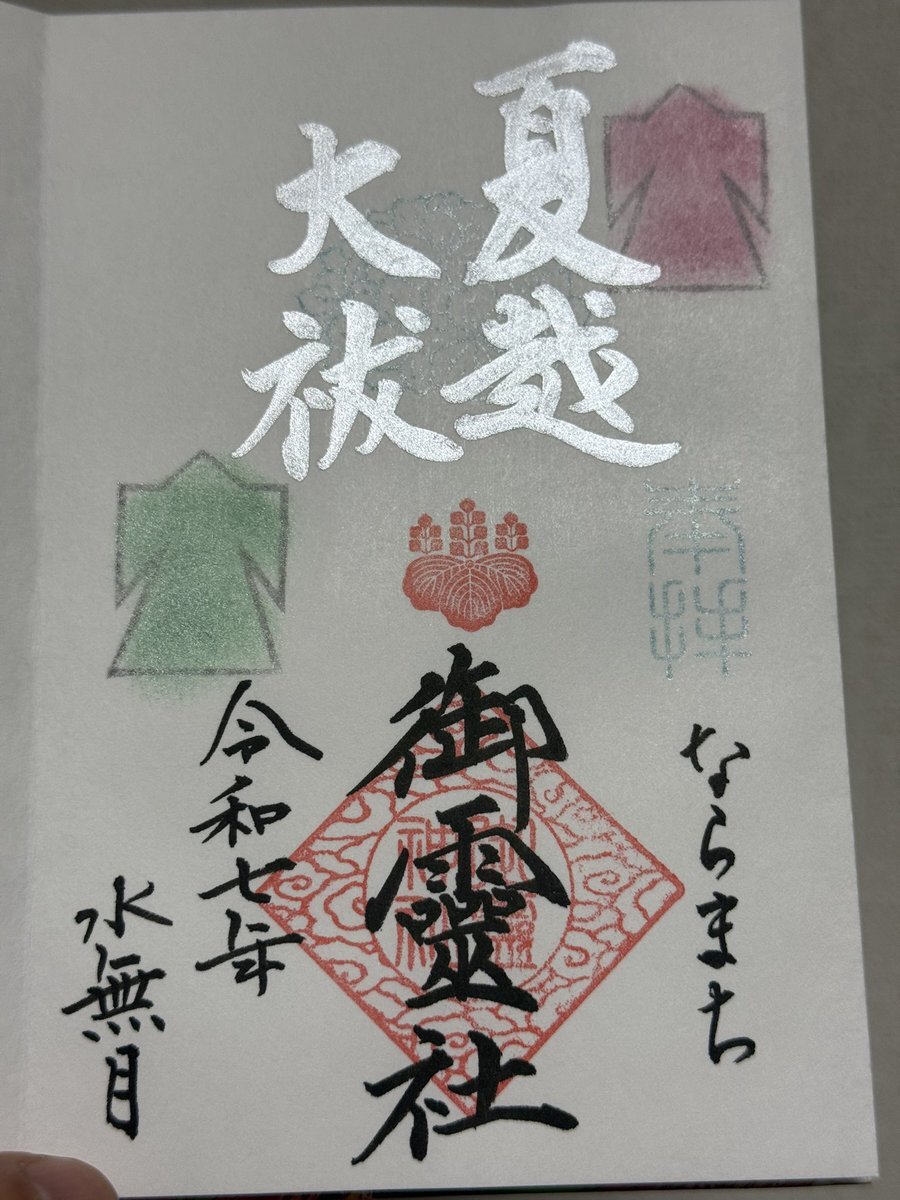 夏越
大祓
奉拝
ならまち
御靈社
御靈
神社
令和七年
水無月